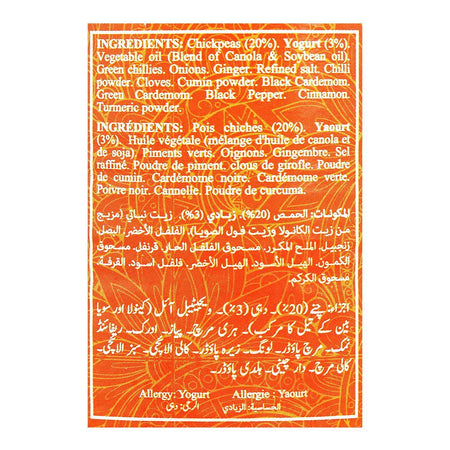 INGREDIENTS: Chickpeas (20%). Yogurt (3%).
Vegetable oil (Blend of Canola & Soybean oil).
Green chillies. Onions. Ginger. Refined salt. Chilli
powder. Cloves. Cumin powder. Black Cardemom.
Green Cardemom. Black Pepper. Cinnamon.
Turmeric powder.
INGRÉDIENTS: Pois chiches (20%). Yaourt
(3%). Huile végétale (mélange d'huile de canola et
de soja). Piments verts. Oignons. Gingembre. Sel
raffiné. Poudre de piment. clous de girofle. Poudre
de cumin. Cardémome noire. Cardémome verte.
Poivre noir. Cannelle. Poudre de curcuma.
المكونات: الحمص (20%). زبادي (3%). زيت نباتي (مزيج
من زيت الكانولا وزيت فول الصويا). الفلفل الأخضر. البصل
زنجبيل. الملح المكرر. مسحوق الفلفل الحار. قرنفل. مسحوق
الكمون. الهيل الأسود. الهيل الأخضر. فلفل اسود. القرفة.
مسحوق الكركم.
اجزاء: چنے (۲۰٪)۔ دہی (۳٪)۔ ویجیٹیبل آئل (کینولا اور سویا
بین کے تیل کا مرکب)۔ ہری مرچ۔ پیاز۔ ادرک۔ ریفائنڈ
نمک۔ مرچ پاؤڈر۔ لونگ۔ زیرہ پاؤڈر۔ کالی الائچی۔ سبز الائچی۔
کالی مرچ۔ دار چینی۔ ہلدی پاؤڈر۔
Allergy: Yogurt Allergie : Yaourt
الرجی: دہی الحساسية: الزبادي